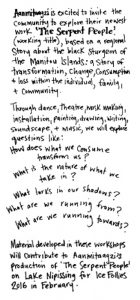 Aanmitaagzi is excited to invite the
community to explore their newest
work "The Serpent People"
(working title), based on a regional
story about the black sturgeon of
the Manitou Islands: a story of
transformation, change, consumption
+ loss within the individual, family,
+ community.
Through dance, theatre, mask making,
installation, painting, drawing, writing,
soundscape, + music, we will explore
questions like:
How does what we consume
transform us?
What is the nature of what we
take in?
What lurks in our shadows?
What are we running from?
What are we running towards?
Material developed in these workshops
will contribute to Aanmitaagzi's
production of "The Serpent People"
on Lake Nipissing for Ice Follies
2016 in February.